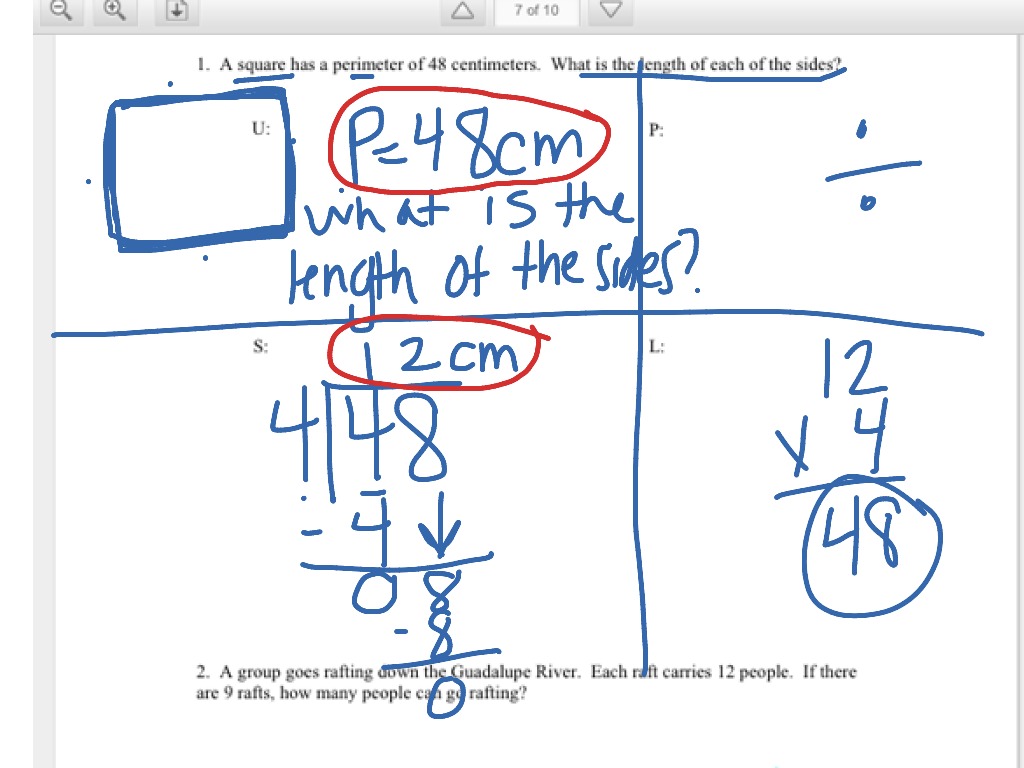 7 of 10
1. A square has a perimeter of 48 centimeters. What is the length of each of the sides?
U:
P=48cm
what is the
length of the sides?
P:
÷
S:
12cm
4 48
- 4
0 8
- 8
0
L:
12
x 4
48
2. A group goes rafting down the Guadalupe River. Each raft carries 12 people. If there
are 9 rafts, how many people can go rafting?